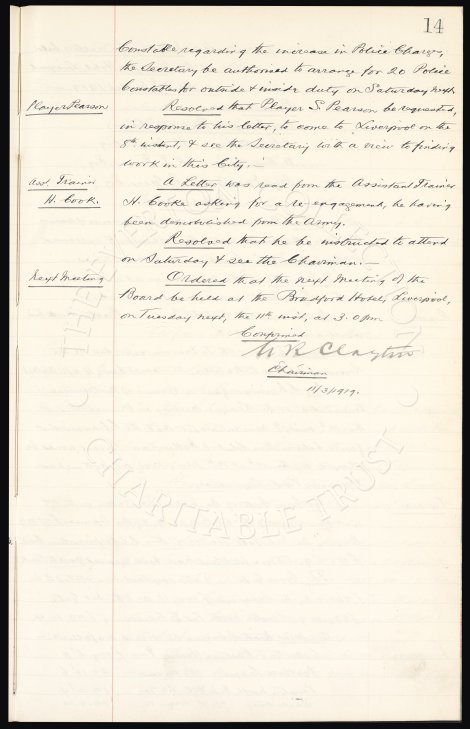 14
Constable regarding the increase in Police Charges,
the Secretary be authorised to arrange for 20 Police
Constables for outside & inside duty on Saturday next.
Player Pearson
Resolved that Player S. Pearson be requested,
in response to his letter, to come to Liverpool on the
8th instant, & see the Secretary with a view to finding
work in this City.-
Asst. Trainer
H. Cook.
A Letter was read from the Assistant Trainer
H. Cooke asking for a re-engagement, he having
been demobilished from the Army.
Resolved that he be instructed to attend
on Saturday & see the Chairman.-
Next Meeting
Ordered that the next Meeting of the
Board be held at the Bradford Hotel, Liverpool,
on Tuesday next, the 11th inst, at 3.0pm
Confirmed
W R Clayton
Chairman
11/3/1919.
CHARITABLE TRUST